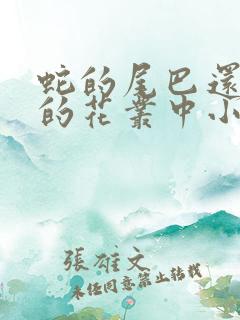 蛇的尾巴還
的花叢中小
張雄文
未经同意禁止转载